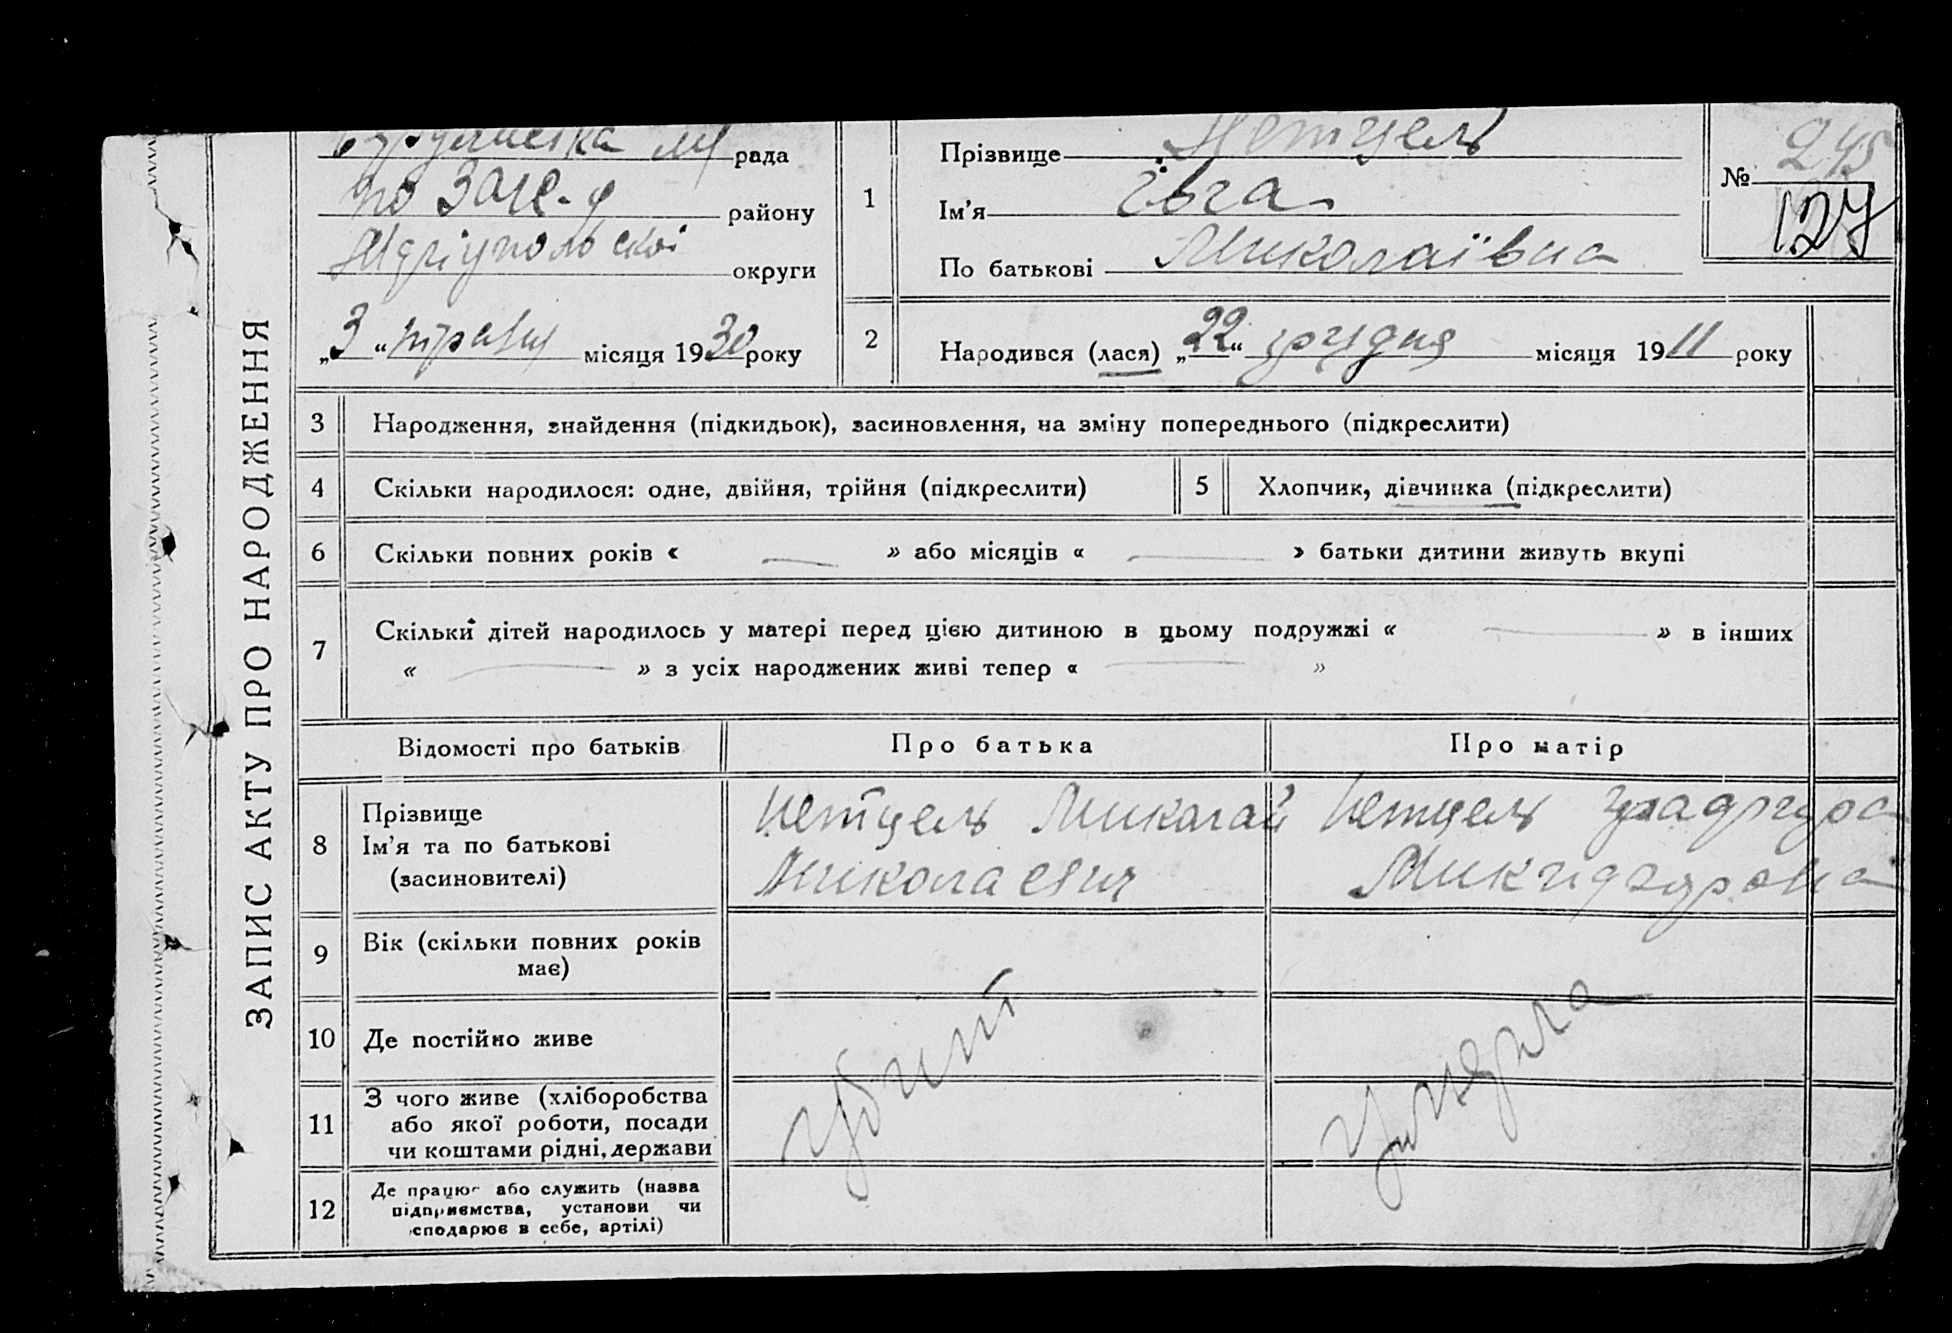 ЗАПИС АКТУ ПРО НАРОДЖЕННЯ
рада
району
округи
„3“ травня місяця 1930 року
1
Прізвище Нетцель
Ім'я
По батькові Миколаївна
№ 245
127
2
Народився (лася) „22“ грудня місяця 1911 року
3
Народження, знайдення (підкидьок), засиновлення, на зміну попереднього (підкреслити)
4
Скільки народилося: одне, двійня, трійня (підкреслити)
5
Хлопчик, дівчинка (підкреслити)
6
Скільки повних років « » або місяців « » батьки дитини живуть вкупі
7
Скільки дітей народилось у матері перед цією дитиною в цьому подружжі « » в інших
« » з усіх народжених живі тепер « »
Відомості про батьків
Про батька
Про матір
8
Прізвище
Ім'я та по батькові
(засиновителі)
Нетцель Миколай
Миколаевич
Нетцель
9
Вік (скільки повних років
має)
10
Де постійно живе
11
З чого живе (хліборобства
або якої роботи, посади
чи коштами рідні, держави
12
Де працює або служить (назва
підприємства, установи чи
сподарює в себе, артілі)
убит
умерла